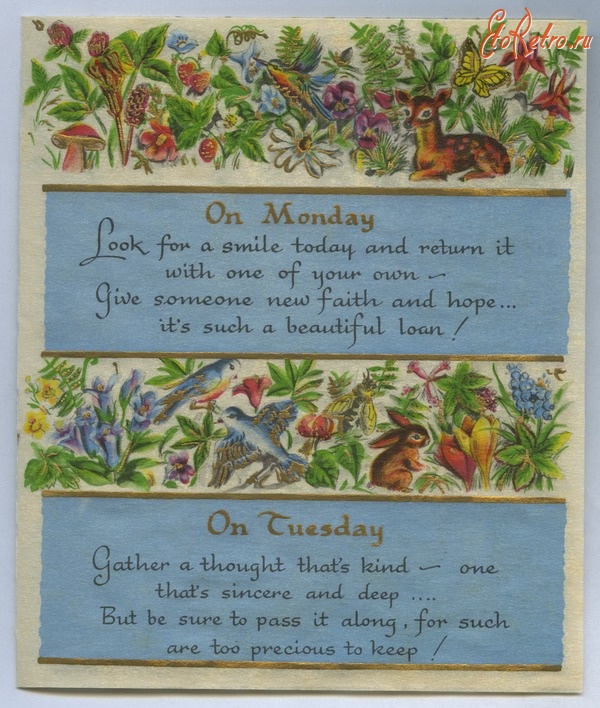 EtoRetro.ru
On Monday
Look for a smile today and return it
with one of your own —
Give someone new faith and hope...
it's such a beautiful loan!
On Tuesday
Gather a thought that's kind — one
that's sincere and deep ....
But be sure to pass it along, for such
are too precious to keep!